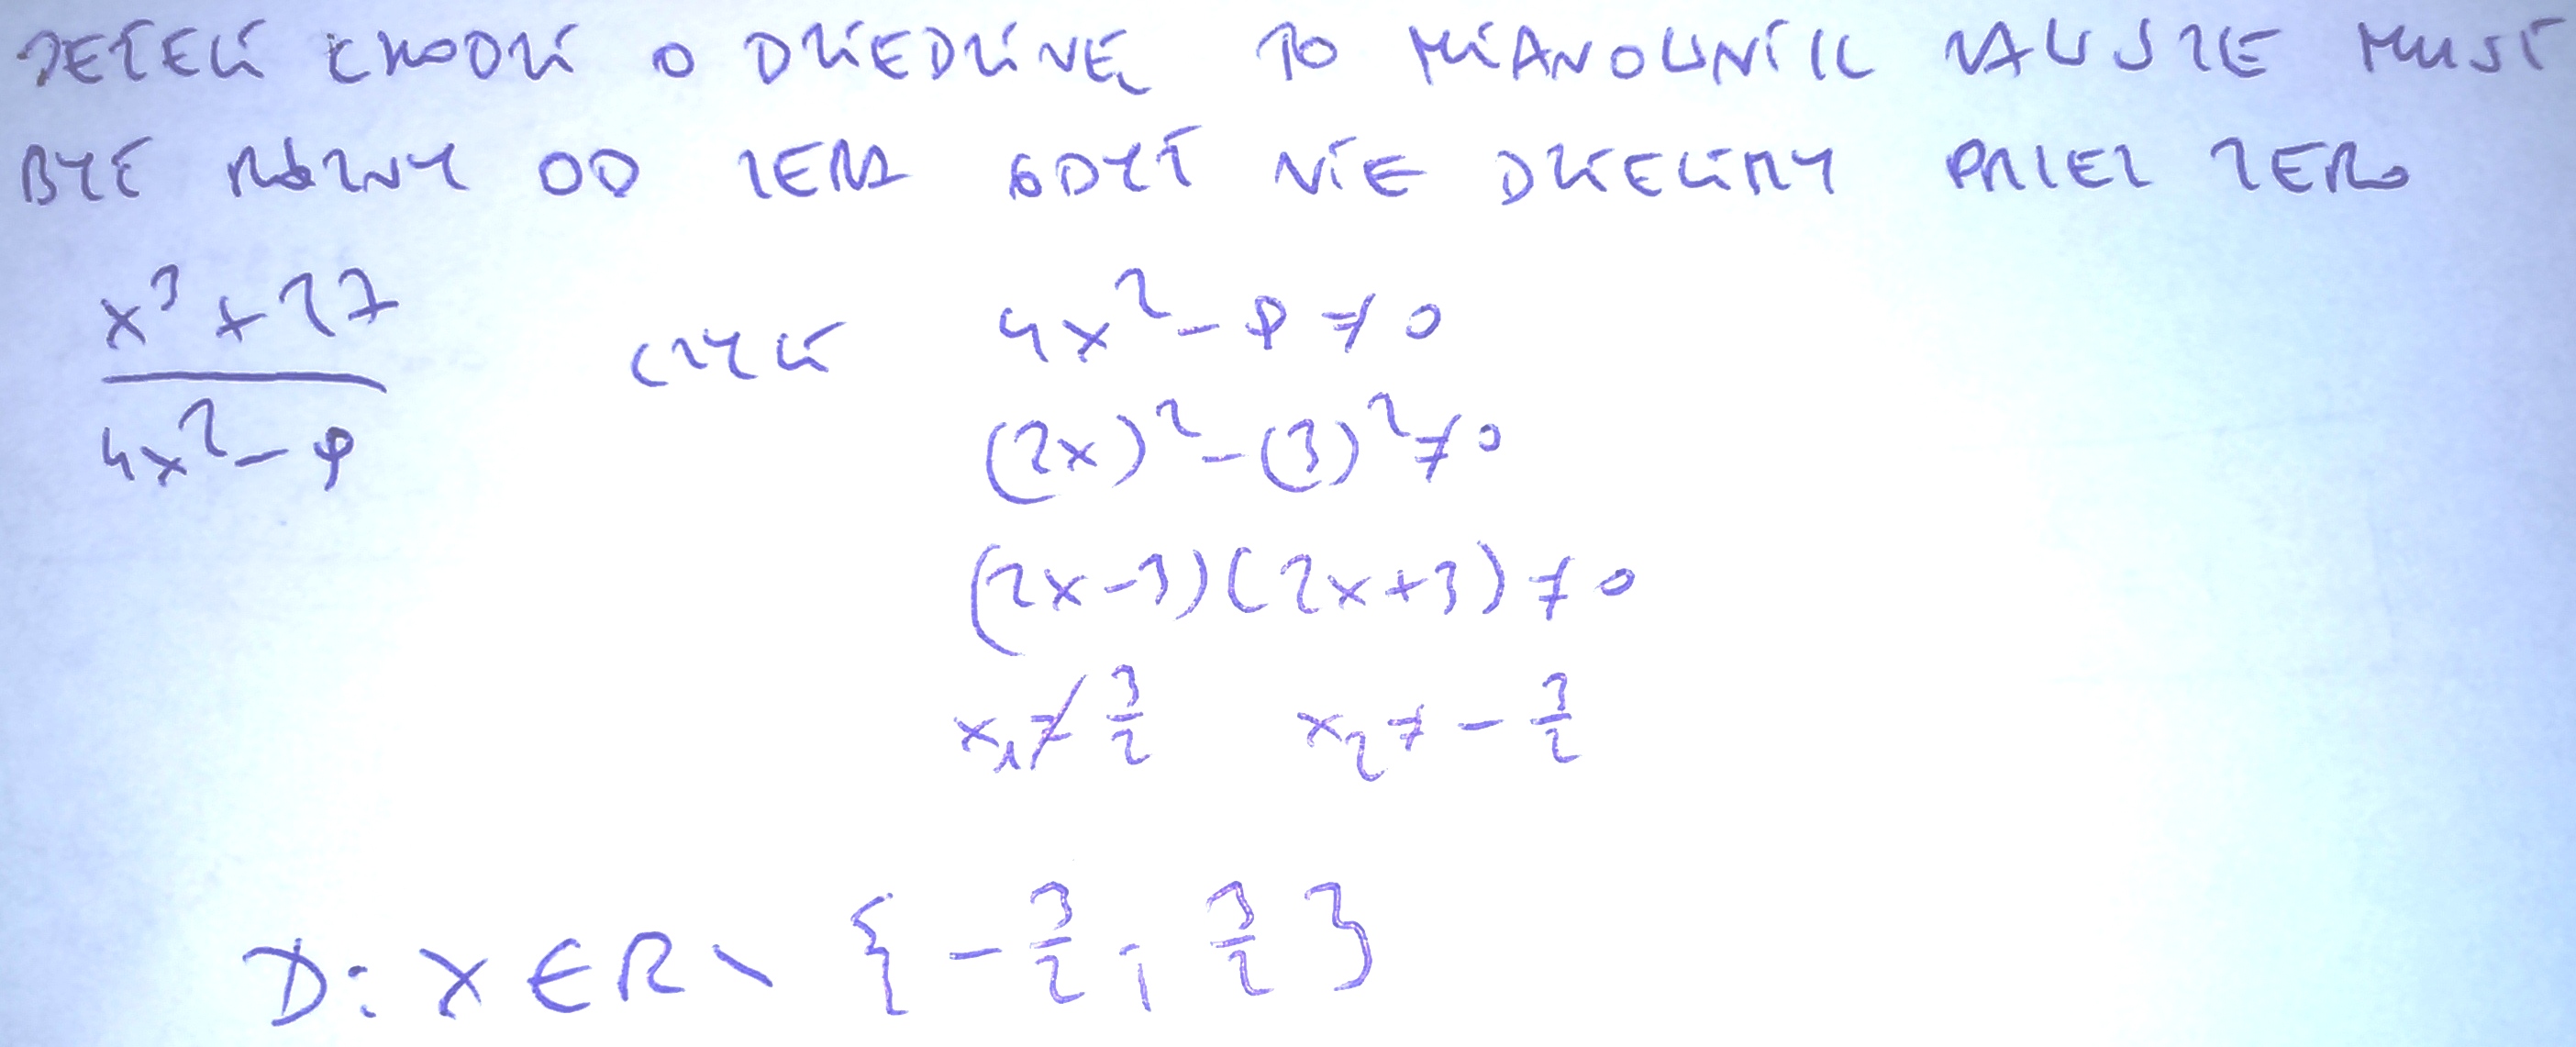 JEŻELI CHODZI O DZIEDZINĘ TO MIANOWNIK ZAWSZE MUSI
BYĆ RÓŻNY OD ZERA GDYŻ NIE DZIELIMY PRZEZ ZERO
x³+27
4x²-9
CZYLI 4x²-9≠0
(2x)²-(3)²≠0
(2x-3)(2x+3)≠0
x₁≠3/2 x₂≠-3/2
D: x∈R \ {-3/2; 3/2}